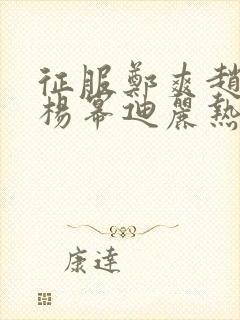 征服鄭爽趙
楊冪迪麗熱
康達